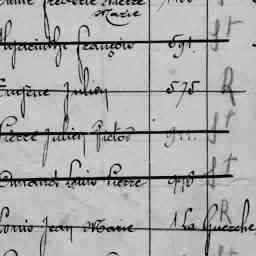 Marie
Hyacinthe François 591. St
Eugène Julien 575 R
Pierre Julien Victor St
Armand Louis Pierre 948 St
Louis Jean Marie 1 La Guerche R